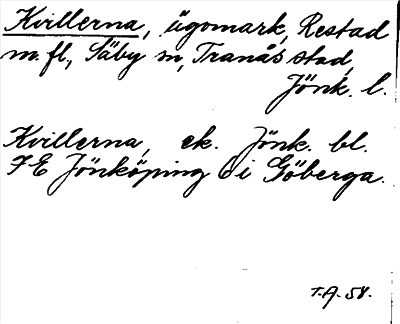 Kvillerna, ägomark, Restad
m. fl., Säby sn, Tranås stad,
Jönk. l.
Kvillerna, ek. Jönk. bl.
7E Jönköping i Göberga.
T.A. 58.